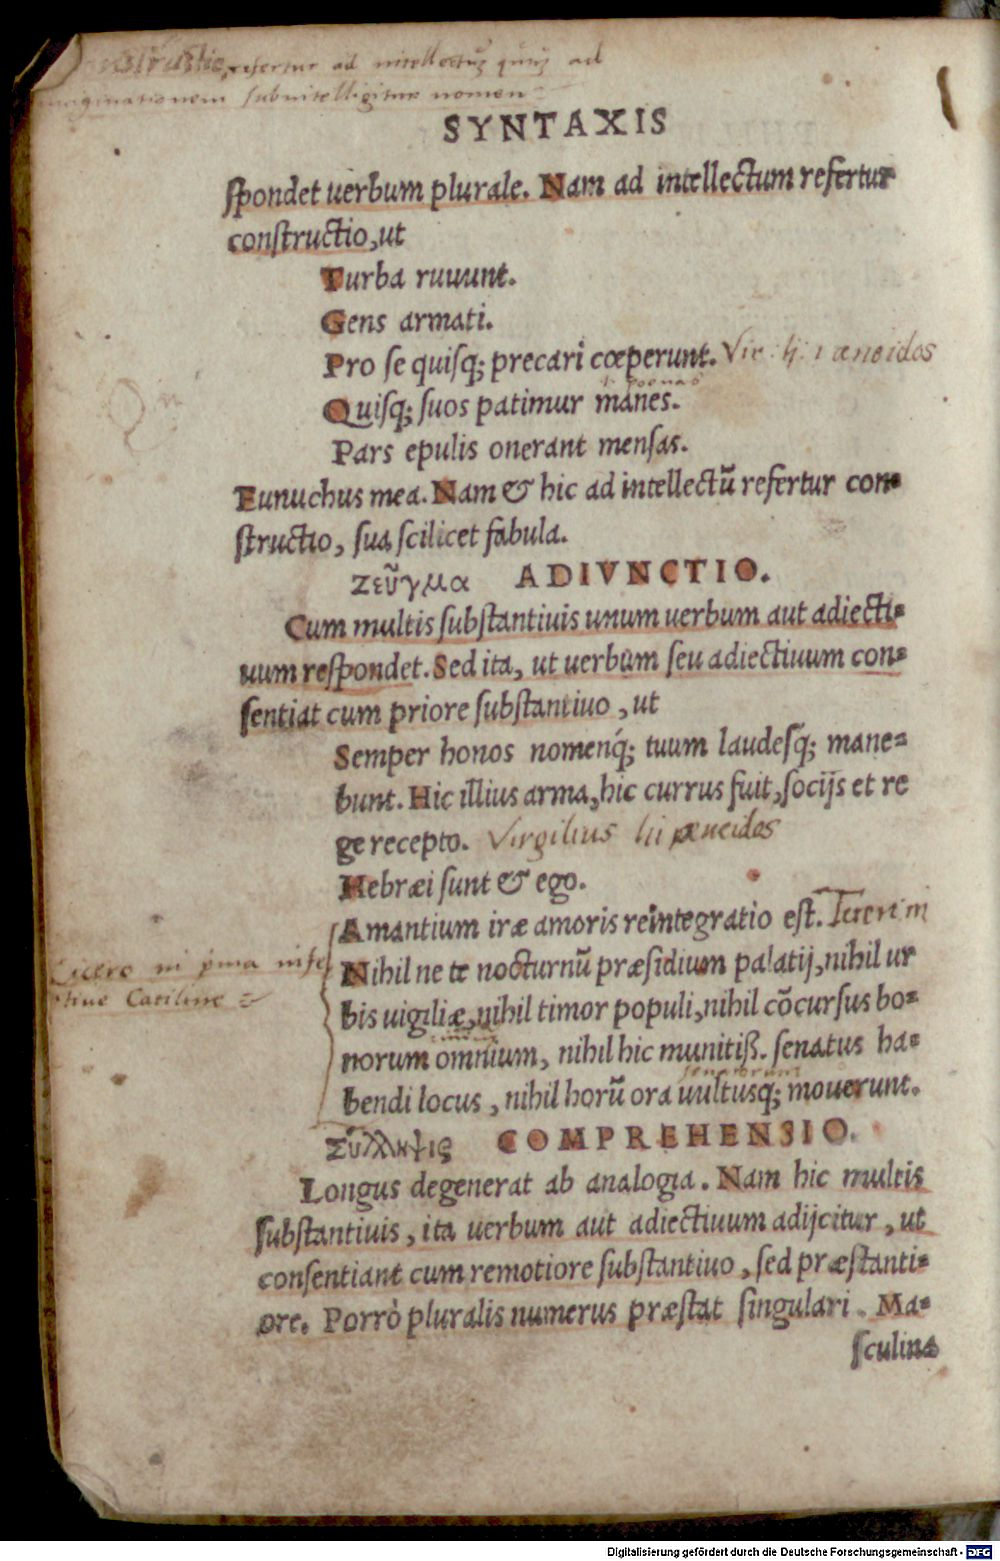 refertur ad intellectuȝ
subintelligitur nomen
SYNTAXIS
ſpondet uerbum plurale. Nam ad intellectum refertur
conſtructio, ut
Turba ruuunt.
Gens armati.
Pro ſe quiſq; precari cœperunt. Vir. li. 1 æneidos
poenas
Quiſq; ſuos patimur manes.
Pars epulis onerant menſas.
Eunuchus mea. Nam & hic ad intellectū refertur con⸗
ſtructio, ſua ſcilicet fabula.
ζεῦγμα ADIVNCTIO.
Cum multis ſubſtantiuis unum uerbum aut adiecti⸗
uum reſpondet. Sed ita, ut uerbum ſeu adiectiuum con⸗
ſentiat cum priore ſubſtantiuo, ut
Semper honos nomenq́; tuum laudeſq́; mane⸗
bunt. Hic illius arma, hic currus fuit, ſocijs et re
ge recepto. Virgilius li æneidos
Hebræi ſunt & ego.
Amantium iræ amoris reintegratio eſt. Teren
Cicero in prima inſe
Nihil ne te nocturnū præſidium palatij, nihil ur
ctiue Catiline
bis uigiliæ, nihil timor populi, nihil cōcurſus bo⸗
norum omnium, nihil hic munitiſſ. ſenatus ha⸗
senatorum
bendi locus, nihil horū ora uultusq; mouerunt.
Σύλληψις COMPREHENSIO.
Longus degenerat ab analogia. Nam hic multis
ſubſtantiuis, ita uerbum aut adiectiuum adijcitur, ut
conſentiant cum remotiore ſubſtantiuo, ſed præſtanti⸗
ore. Porrò pluralis numerus præſtat ſingulari. Ma⸗
ſculina
Digitalisierung gefördert durch die Deutsche Forschungsgemeinschaft - DFG